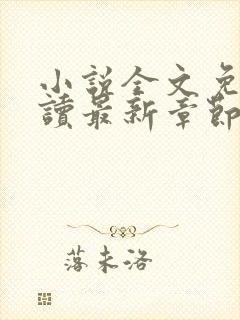 小說全文免
讀最新章節
落未洛